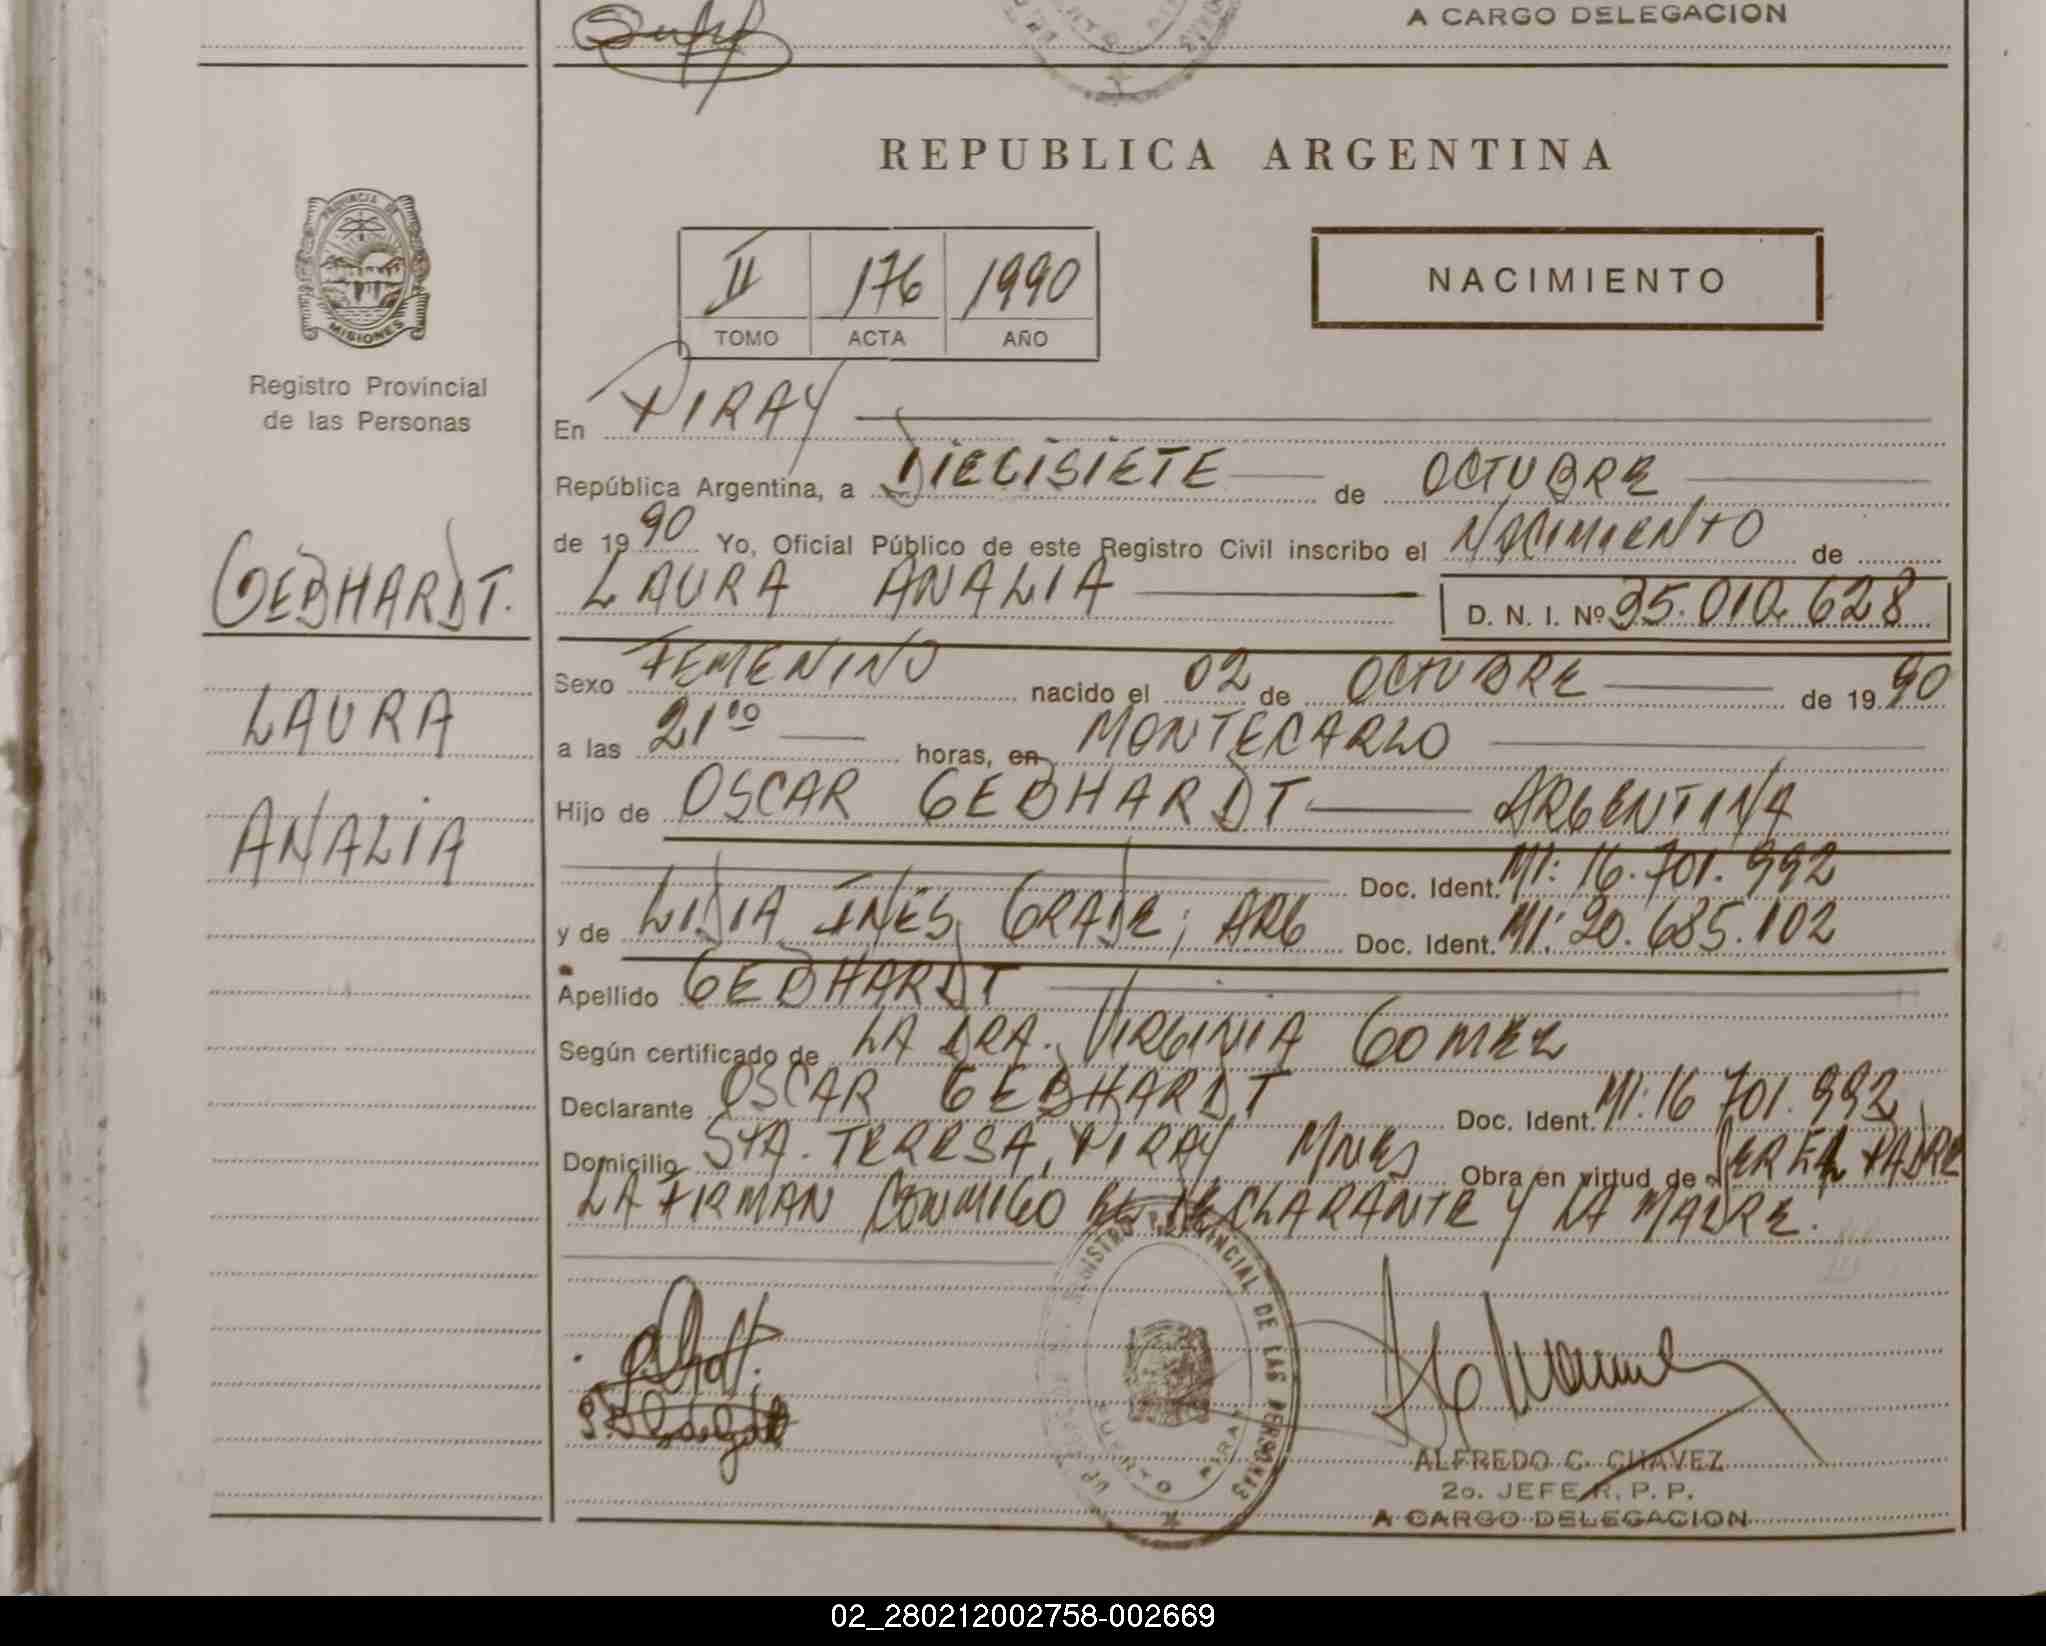 A CARGO DELEGACION
REPUBLICA ARGENTINA
PROVINCIA DE
MISIONES
Registro Provincial
de las Personas
II 176 1990
TOMO ACTA AÑO
NACIMIENTO
En PIRAY
República Argentina, a DIECISIETE de OCTUBRE
de 1990 Yo, Oficial Público de este Registro Civil inscribo el NACIMIENTO de
GEBHARDT.
LAURA ANALIA D. N. I. Nº 35.010.628
Sexo FEMENINO nacido el 02 de OCTUBRE de 1990
LAURA
a las 21¹⁰ horas, en MONTECARLO
Hijo de OSCAR GEBHARDT ARGENTINA
ANALIA
Doc. Ident. MI: 16.701.992
y de LIDIA INÉS GRADE; ARG Doc. Ident. MI: 20.685.102
Apellido GEBHARDT
Según certificado de LA DRA. VIRGINIA GOMEZ
Declarante OSCAR GEBHARDT Doc. Ident. MI: 16 701.992
Domicilio STA. TERESA, PIRAY MNES Obra en virtud de SER EL PADRE
LA FIRMAN CONMIGO EL DECLARANTE Y LA MADRE.
REGISTRO PROVINCIAL DE LAS PERSONAS
PUERTO PIRAY
ALFREDO C. CHAVEZ
2o. JEFE R. P. P.
A CARGO DELEGACION
02_280212002758-002669